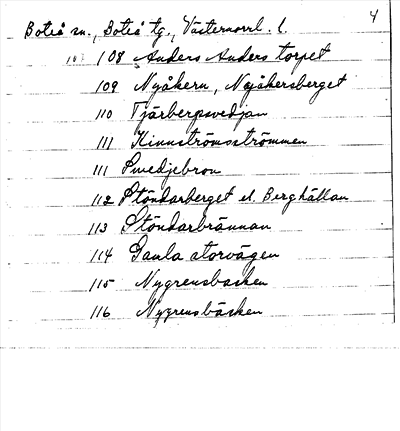 4
Boteå sn., Boteå tg., Västernorrl. l.
108 Anders Anders torpet
109 Nyåkern, Nyåkersberget
110 Tjärbergsvedjan
111 Kinnströmsströmmen
111 Svedjebron
112 Stöndarberget el. Berghällan
113 Stöndarbrännan
114 Gamla storvägen
115 Nygrensbacken
116 Nygrensbäcken